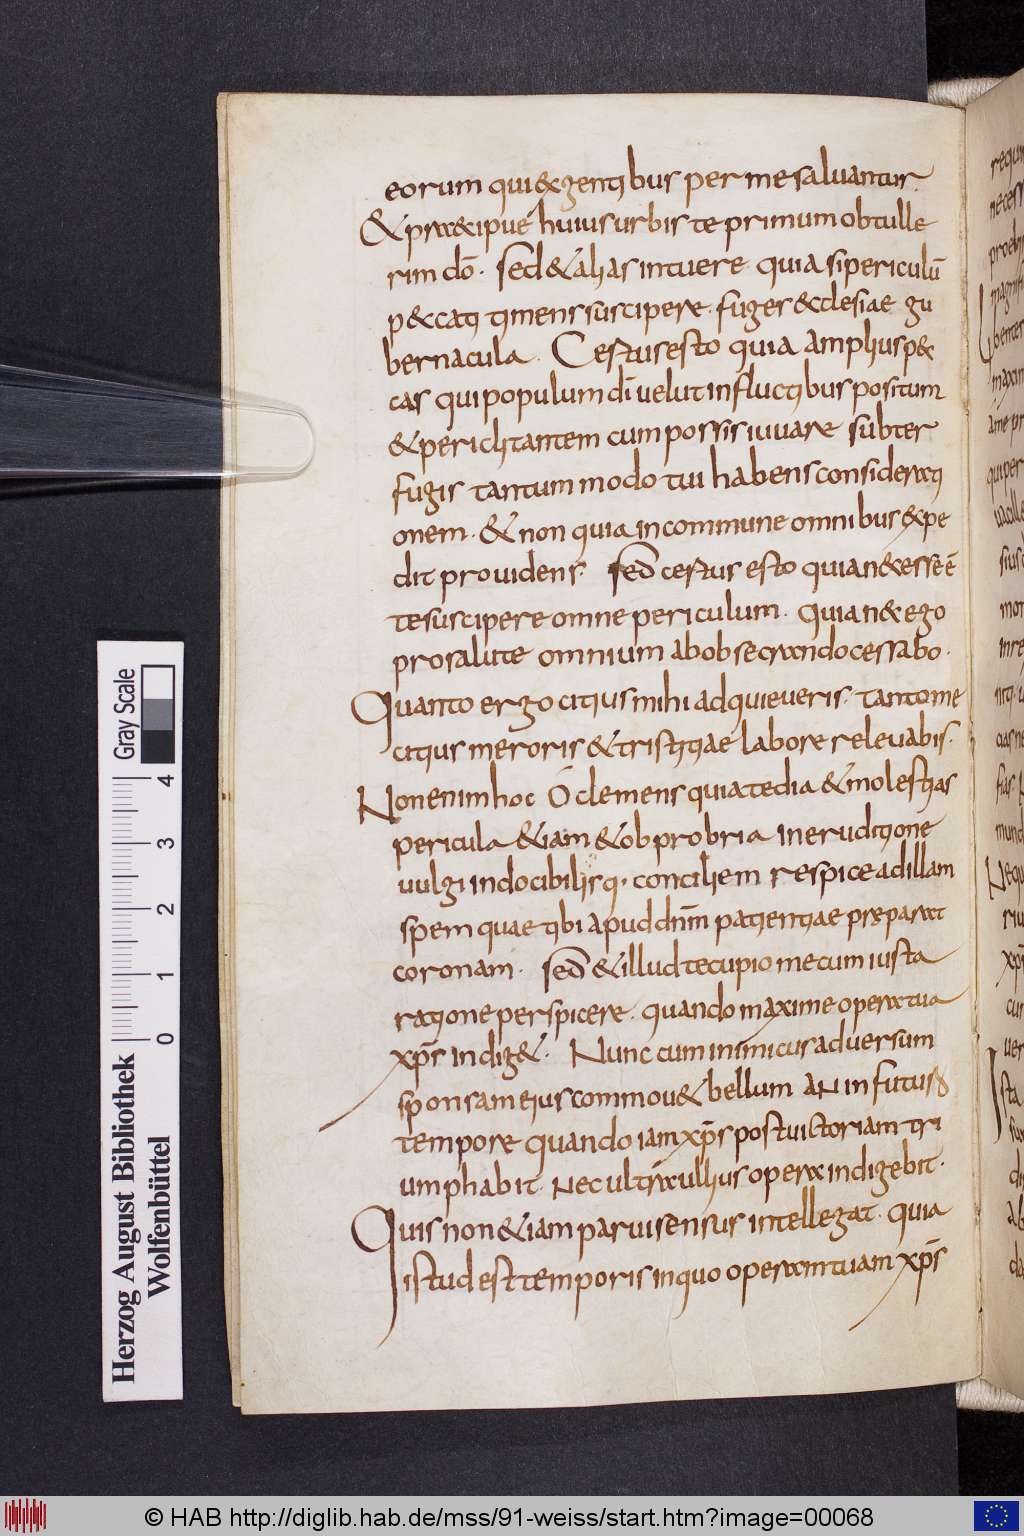 eorum qui & gentibus per me saluantur.
& praecipue huius urbis te primum obtulle
rim dō. sed & alias intuere quia si periculū
peccati times suscipere. fuger & clesiae gu
bernacula. Certus esto quia amplius pec
cas qui populum dī uelut in fluctibus positum
& periclitantem cum possis iuuare subter
fugis tantummodo tui habens considerati
onem. & non quia in commune omnibus expe
dit prouidens. sed certus esto quia necesse ē
te suscipere omne periculum. quia nec ego
pro salute omnium ab obsecrando cessabo.
Quanto ergo citius mihi adquieueris. tanto me
citius meroris & tristitiae labore releuabis.
Non enim hoc ó clemens quia tedia & molestias
pericula & iam & obprobria in eruditione
uulgi indocibilisq· conciliem respice ad illam
spem quae tibi apud dnm patientiae preparat
coronam. sed & illud te cupio mecum iusta
ratione perspicere. quando maxime opera tua
xp̄s indiget. Nunc cum inimicus aduersum
sponsam eius commouet bellum an in futuro
tempore quando iam xp̄s post uictoriam tri
umphabit. nec ultra ullius opera indigebit.
Quis non & iam parui sensus intellegat. quia
istud est temporis in quo operam tuam xp̄s
Gray Scale
4
3
2
1
0
Herzog August Bibliothek
Wolfenbüttel
© HAB http://diglib.hab.de/mss/91-weiss/start.htm?image=00068